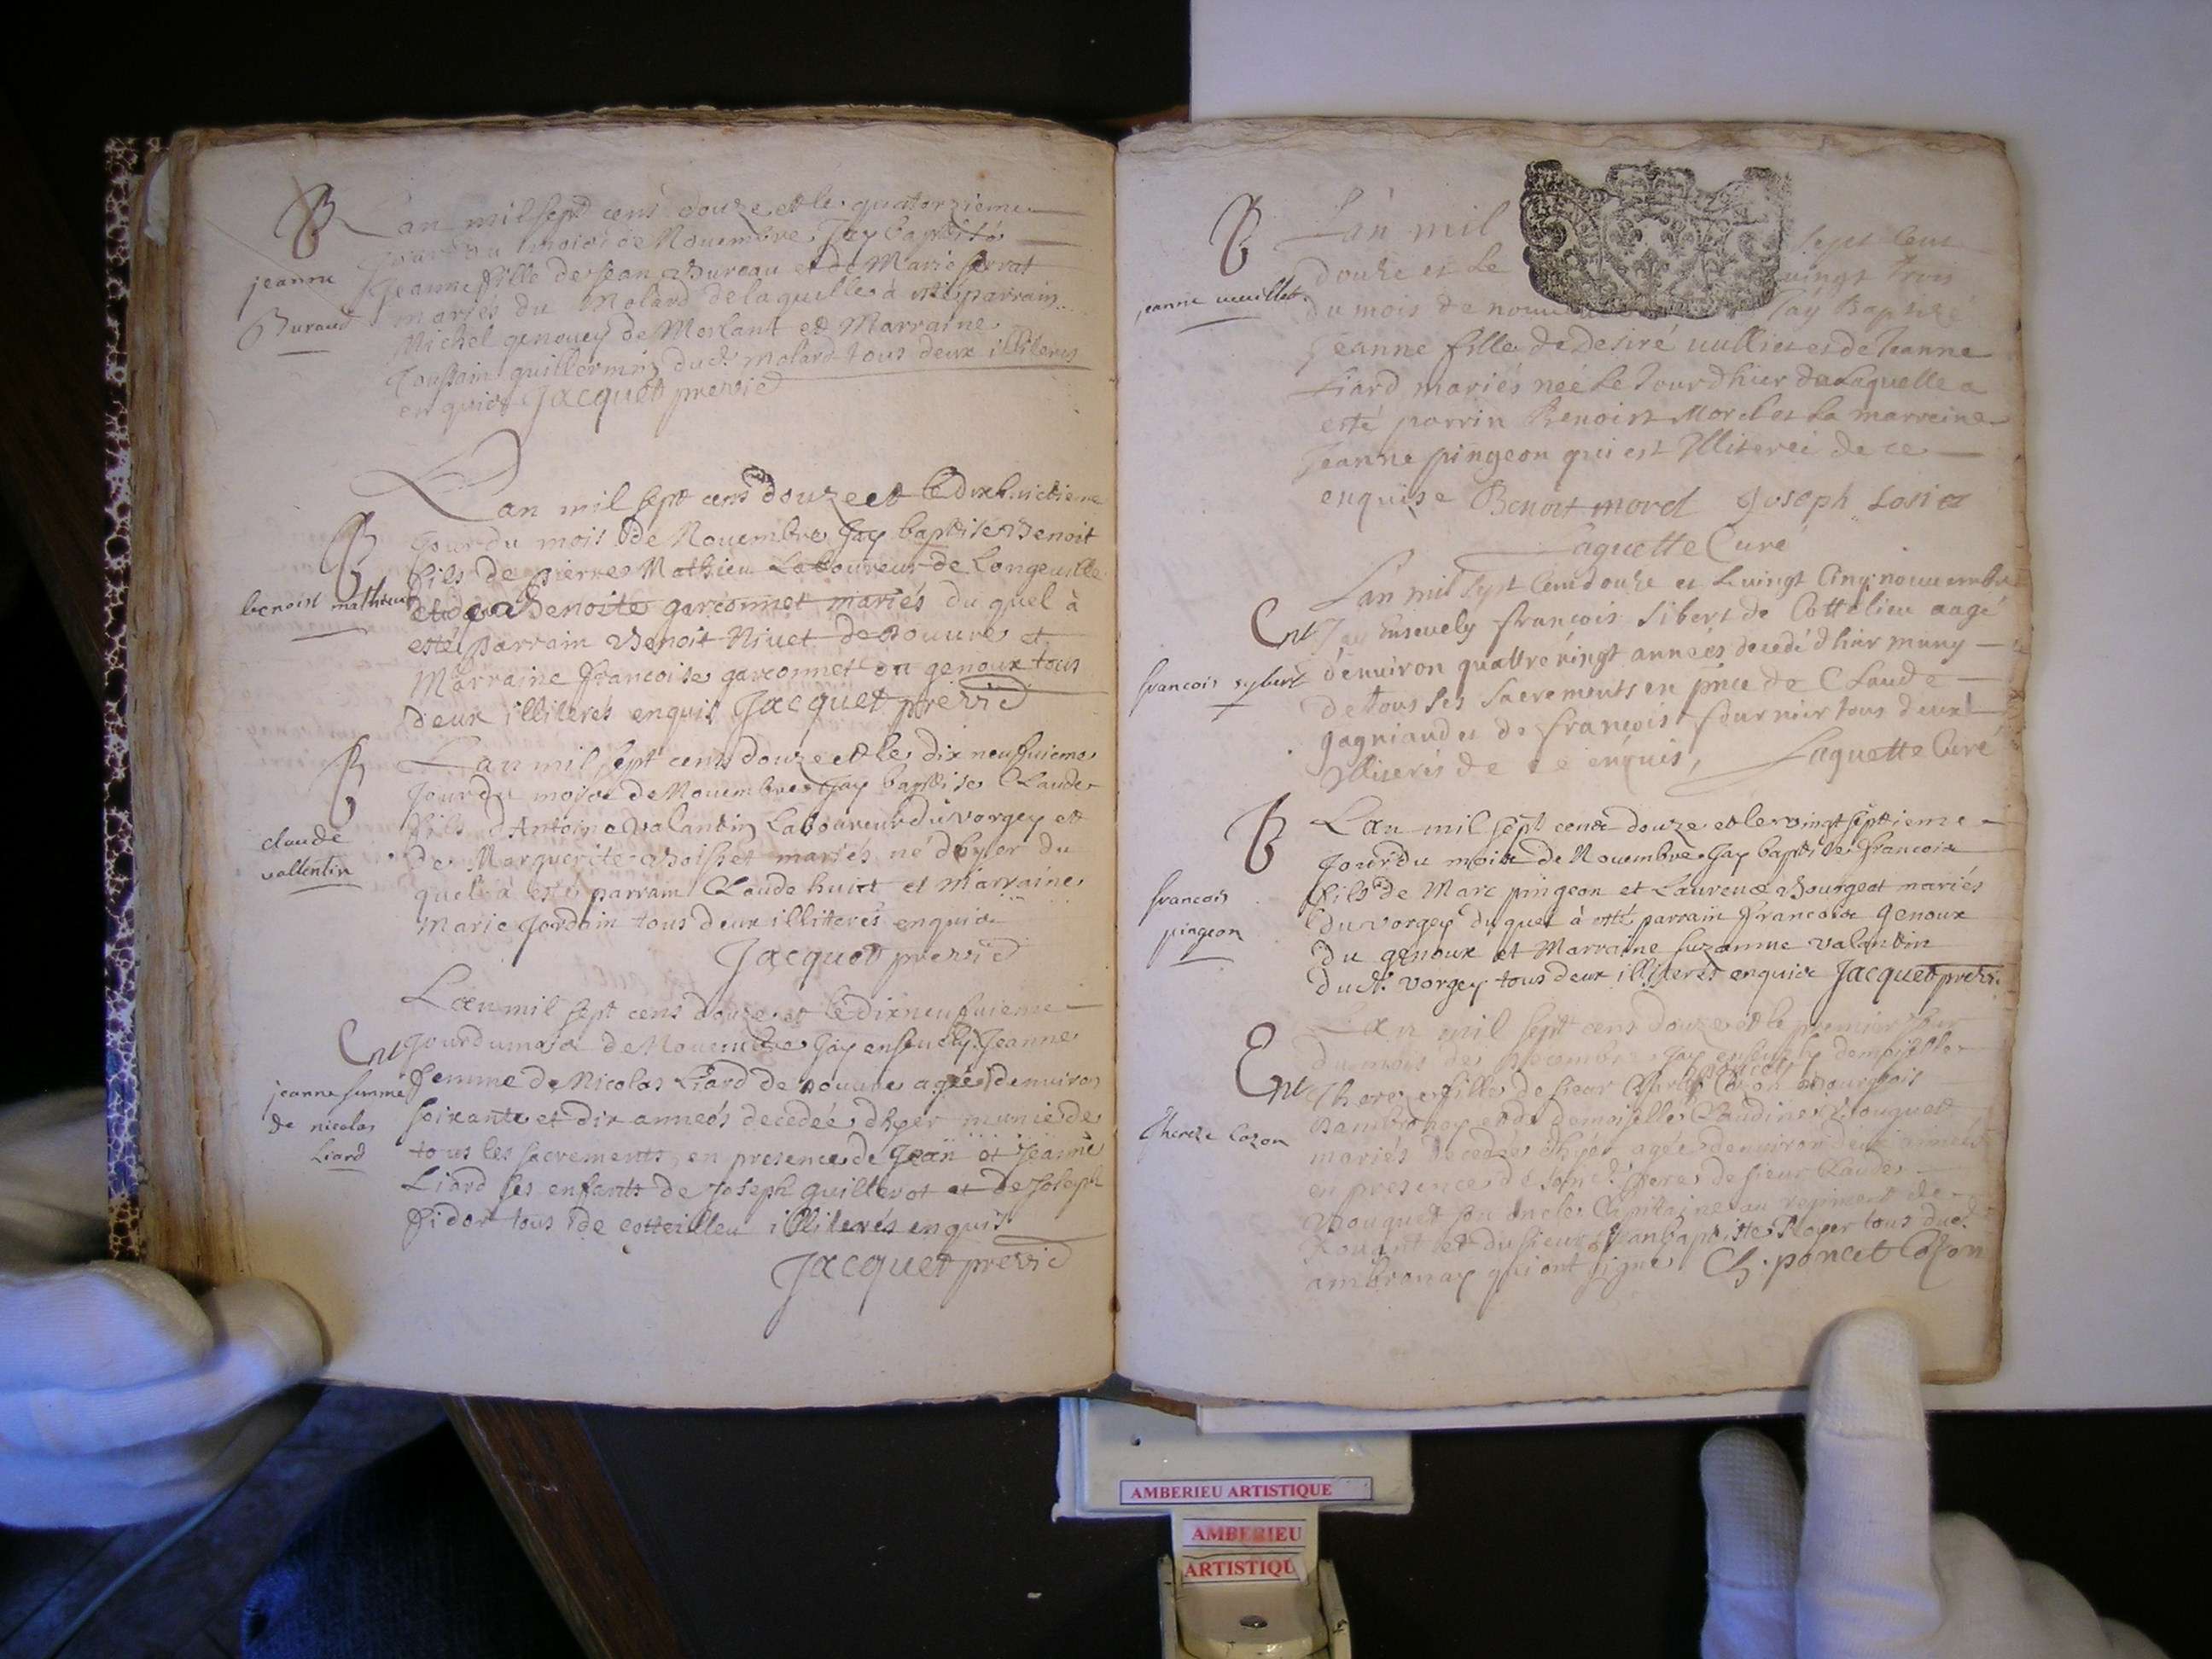 B
jeanne
Buraud
Lan mil sept cens douze et le quatorzieme
Jour du mois de Nouembre Jay baptisé
Jeanne fille de Jean Bureau et de Marie
mariés du Molard de laquelle à esté parrain
Michel genouey de Merlant et Marraine
Toussain guillermin dud. molard tous deux illiterés
enquis Jacquet previc
B
benoist mathieu
Lan mil sept cens douze et le dixhuictieme
Jour du mois de Nouembre Jay baptise Benoit
fils de pierre Mathieu Laboureur de Longeville
et de Benoite garconnet mariés du quel à
esté parrain Benoit Niuet de Douure et
Marraine francoise garconnet du genoux tous
deux illiterés enquis Jacquet previc
B
claude
vallentin
Lan mil sept cens douze et le dix neufuieme
Jour du mois de Nouembre Jay baptise Claude
fils d Antoine Valantin Laboureur du vorgey et
de Marguerite Boisset mariés né dhyer du
quel à esté parrain Claude huict et marraine
Marie Jordain tous deux illitterés enquis
Jacquet previc
Ent
jeanne femme
de nicolas
Liard
Lan mil sept cens douze et le dixneufuieme
Jour du mois de Nouembre Jay enseuely Jeanne
femme de Nicolas Liard de douure agée denuiron
soixante et dix annés decedée dhyer munie de
tous les sacrements en presence de Jean et Jeanne
Liard ses enfants de Joseph guillerot et de Joseph
fidor tous de cotteilleu illiterés enquis
Jacquet previc
B
jeanne uuillet
Lan mil sept Cent
douze et Le uingt trois
du mois de Jay Baptize
Jeanne fille de Desiré uulliet et de Jeanne
Liard mariés neé Le Jourdhier de Laquelle a
esté parrin Benoist Morel et La marreine
Jeanne pingeon qui est Illiterée de ce
enquise Benoit morel Joseph Losier
Laguette Curé
Ent
francois sybert
Lan mil Sept Cent douze et Le uingt Cinq nouuembre
Jay Enseuely francois Sibert de Cottelieu aagé
d'enuiron quattre uingt annés decedé dhier muny
de tous ses Sacrements en pnce de Claude
gagniand et de francois fournier tous deux
Illiterés de ce enquis, Laguette Curé
B
francois
pingeon
Lan mil sept cens douze et le vingt septieme
Jour du mois de Nouembre Jay baptise francois
fils de Marc pingeon et Laurence Bourgeot mariés
du vorgey du quel à esté parrain francois Genoux
du genoux et Marraine Suzanne valantin
dud. vorgey tous deux illiterés enquis Jacquet previ.
Ent
Thereze Cozon
Lan mil sept cens douze et le premier Jour
du mois de Decembre Jay enseuely demoiselle
Thereze fille de sieur Cozon Bourgeois
Dambronay et de Demoiselle Claudine Bouquet
mariés decedée dhyer agée denuiron deux années
en presence de sond. pere de sieur Claude
Bouquet son oncle Capitaine au regiment de
et du sieur Jean baptiste Royer tous dud.
ambronay qui ont signé Ch. poncet Cozon
AMBERIEU ARTISTIQUE
AMBERIEU
ARTISTIQU